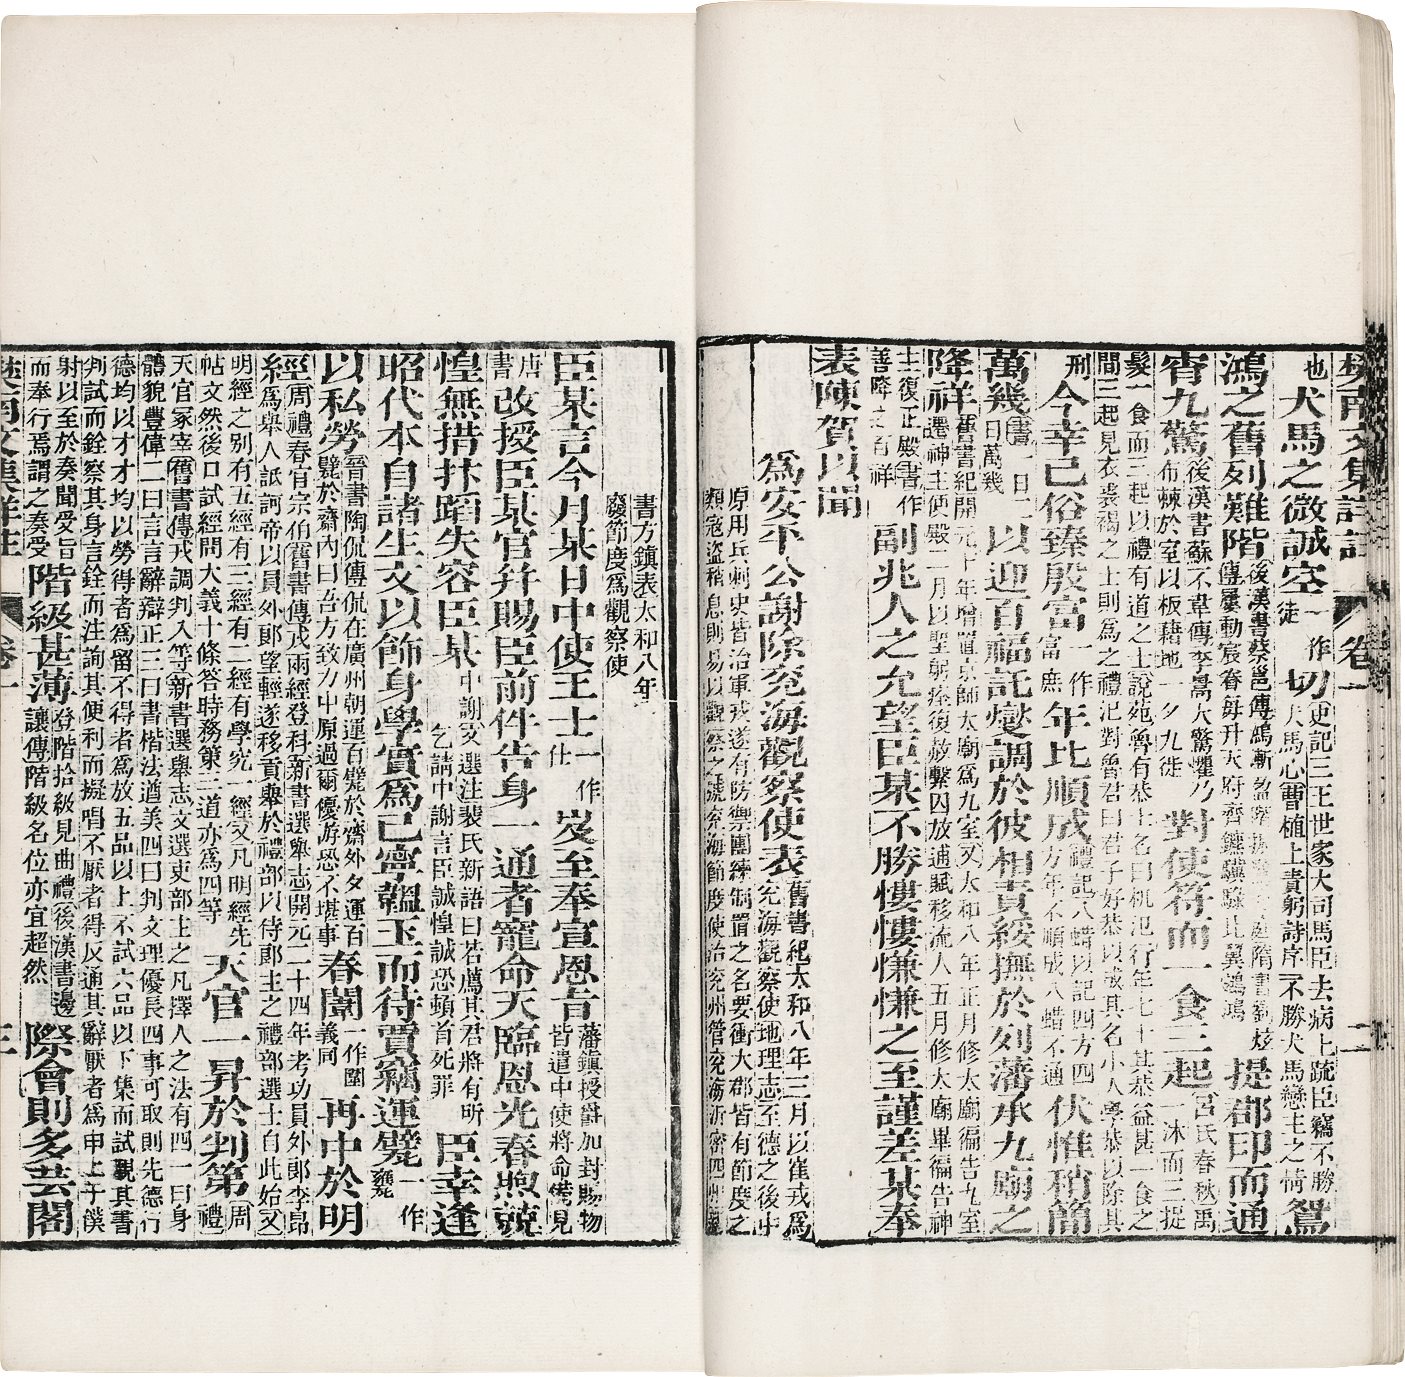 樊南文集詳註 卷一 二
也犬馬之微誠空一作徒切史記三王世家大司馬臣去病上疏臣竊不勝犬馬心曹植上責躬詩序不勝犬馬戀主之情鴛
鴻之舊列難階後漢書蔡邕傳鴻漸盈階振鷺充庭隋書劉炫傳屢動宸眷每升天府齊鑣驥騄比翼鵷鴻提郡印而通
宵九驚後漢書蘇不韋傳李暠大驚懼乃布棘於室以板藉地一夕九徙對使符而一食三起呂氏春秋禹一沐而三捉
髮一食而三起以禮有道之士說苑魯有恭士名曰机氾行年七十其恭益甚一食之間三起見衣裘褐之士則為之禮氾對魯君曰君子好恭以成其名小人學恭以除其
刑今幸已俗臻殷富一作富庶年比順成禮記八蜡以記四方四方年不順成八蜡不通伏惟稍簡
萬幾書一日二日萬幾以迎百福託燮調於彼相責綏撫於列藩承九廟之
降祥舊書紀開元十年增置京師太廟為九室又太和八年正月修太廟徧告九室遷神主便殿二月以聖躬痊復赦繫囚放逋賦移流人五月修太廟畢徧告神
主復正殿書作善降之百祥副兆人之允望臣某不勝慺慺慊慊之至謹差某奉
表陳賀以聞
為安平公謝除兗海觀察使表舊書紀太和八年三月以崔戎為兗海觀察使地理志至德之後中
原用兵刺史皆治軍戎遂有防禦團練制置之名要衝大郡皆有節度之類寇盜稍息則易以觀察之號兗海節度使治兗州管兗海沂密四州
書方鎮表太和八年廢節度為觀察使
臣某言今月某日中使王士一作仕岌至奉宣恩旨藩鎮授爵加封賜物皆遣中使將命備見
唐書改授臣某官并賜臣前件告身一通者寵命天臨恩光春煦兢
惶無措抃蹈失容臣某中謝文選注裴氏新語曰若薦其君將有所乞請中謝言臣誠惶誠恐頓首死罪臣幸逢
昭代本自諸生文以飾身學實為己寧韞玉而待賈竊運甓一作甕
以私勞晉書陶侃傳侃在廣州朝運百甓於齋外夕運百甓於齋內曰吾方致力中原過爾優游恐不堪事春闈一作圍義同再中於明
經周禮春官宗伯舊書傳戎兩經登科新書選舉志開元二十四年考功員外郎李昂為舉人詆訶帝以員外郎望輕遂移貢舉於禮部以侍郎主之禮部選士自此始又
明經之別有五經有三經有二經有學究一經又凡明經先帖文然後口試經問大義十條答時務策三道亦為四等天官一昇於判第周禮
天官冢宰舊書傳戎調判入等新書選舉志文選吏部主之凡擇人之法有四一曰身體貌豐偉二曰言言辭辯正三曰書楷法遒美四曰判文理優長四事可取則先德行
德均以才才均以勞得者為留不得者為放五品以上不試六品以下集而試觀其書判試而銓察其身言銓而注詢其便利而擬唱不厭者得反通其辭厭者為甲上于僕
射以至於奏聞受旨而奉行焉謂之奏受階級甚薄登階拾級見曲禮後漢書邊讓傳階級名位亦宜超然際會則多芸閣
樊南文集詳註 卷一 三